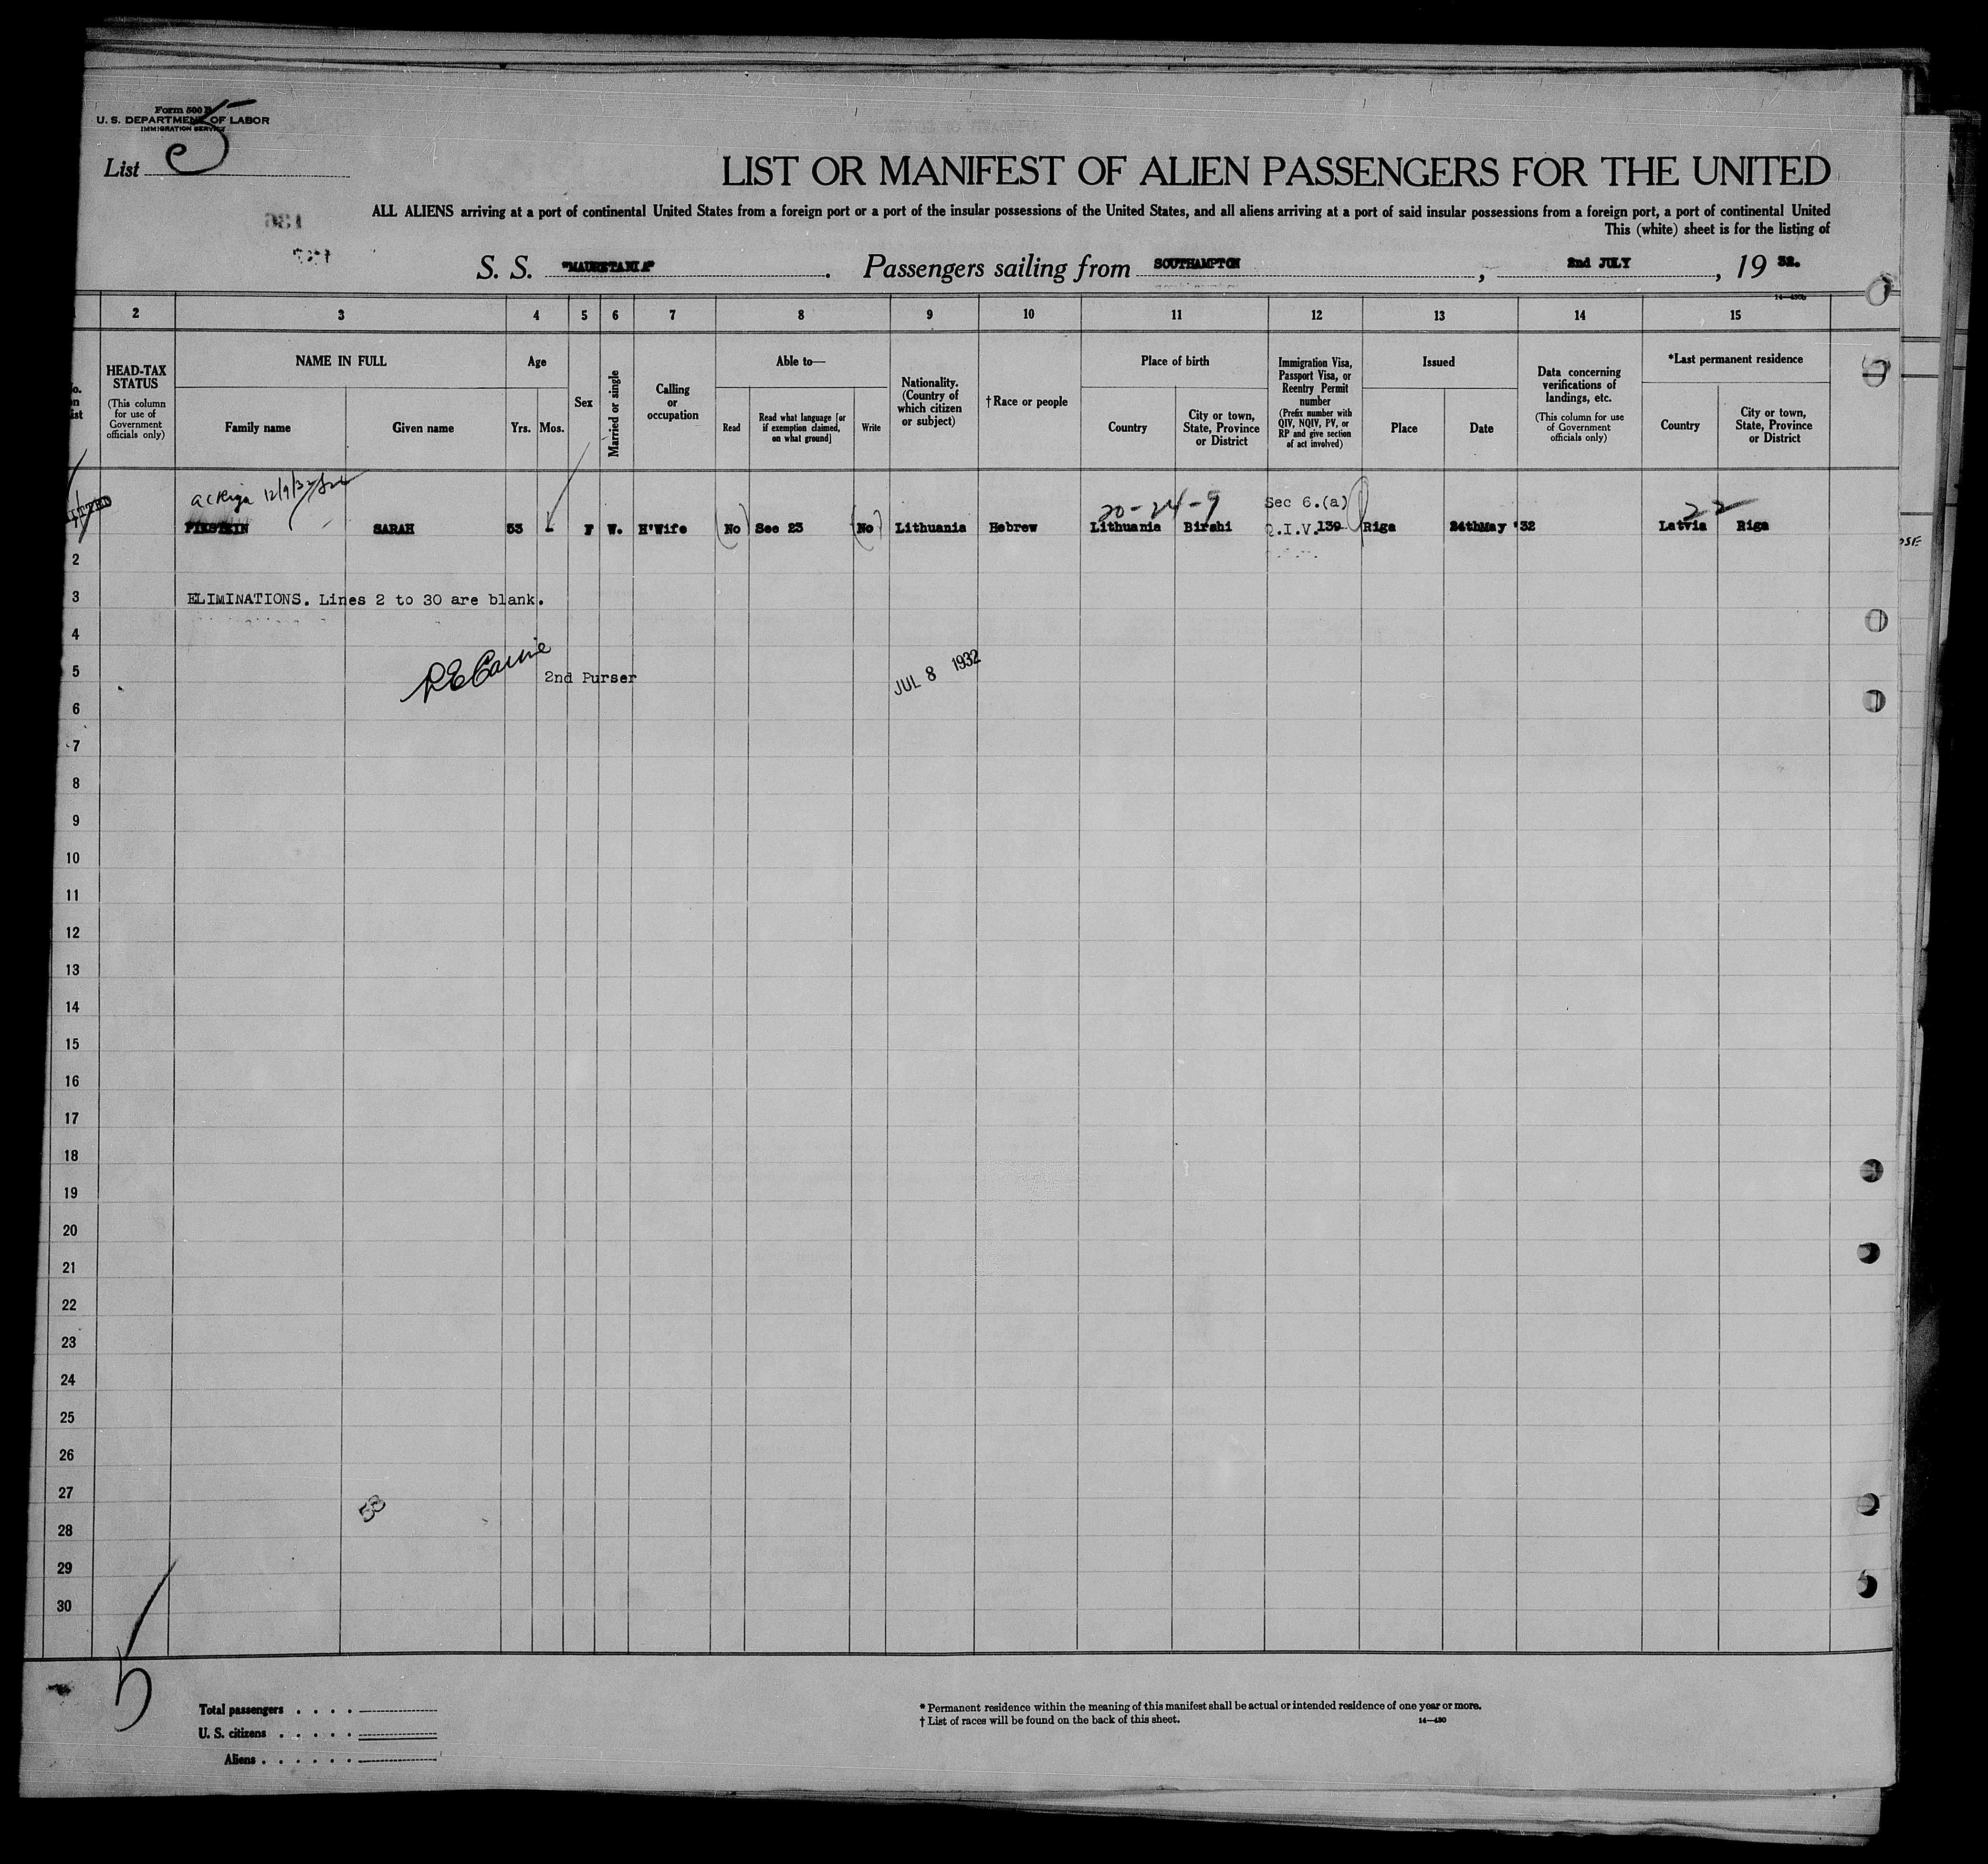 Form 500 B
U. S. DEPARTMENT OF LABOR
IMMIGRATION SERVICE
List 5
LIST OR MANIFEST OF ALIEN PASSENGERS FOR THE UNITED
ALL ALIENS arriving at a port of continental United States from a foreign port or a port of the insular possessions of the United States, and all aliens arriving at a port of said insular possessions from a foreign port, a port of continental United
This (white) sheet is for the listing of
S. S. "MAURETANIA". Passengers sailing from SOUTHAMPTON, 2nd JULY, 19 32.
14-430b
2 3 4 5 6 7 8 9 10 11 12 13 14 15
HEAD-TAX STATUS (This column for use of Government officials only)
NAME IN FULL
Family name Given name
Age
Yrs. Mos.
Sex
Married or single
Calling or occupation
Able to—
Read
Read what language [or if exemption claimed, on what ground]
Write
Nationality. (Country of which citizen or subject)
† Race or people
Place of birth
Country
City or town, State, Province or District
Immigration Visa, Passport Visa, or Reentry Permit number (Prefix number with QIV, NQIV, PV, or RP and give section of act involved)
Issued
Place Date
Data concerning verifications of landings, etc. (This column for use of Government officials only)
*Last permanent residence
Country
City or town, State, Province or District
Riga 12/9/32
20-24-9 Sec 6.(a) 22
SARAH 53 - F W. H'Wife No See 23 No Lithuania Hebrew Lithuania Birshi Q.I.V.139 Riga 24thMay '32 Latvia Riga
2
3 ELIMINATIONS. Lines 2 to 30 are blank.
4
5 2nd Purser JUL 8 1932
6
7
8
9
10
11
12
13
14
15
16
17
18
19
20
21
22
23
24
25
26
27
53
28
29
30
5
Total passengers . . . .
U. S. citizens . . . . .
Aliens . . . . . .
* Permanent residence within the meaning of this manifest shall be actual or intended residence of one year or more.
† List of races will be found on the back of this sheet. 14-430